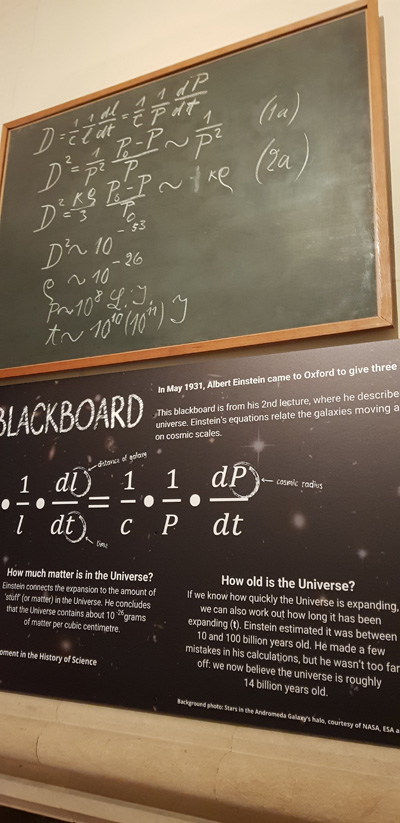 D = 1/c 1/l dl/dt = 1/c 1/P dP/dt
D² = 1/P² P₀-P/P ~ 1/P² (1a)
D² = κρ/3 P₀-P/P₀ ~ κρ (2a)
D² ~ 10⁻⁵³
ρ ~ 10⁻²⁶
P ~ 10⁸ L.J.
t ~ 10¹⁰(10¹¹) J
BLACKBOARD
In May 1931, Albert Einstein came to Oxford to give three
This blackboard is from his 2nd lecture, where he describe
universe. Einstein's equations relate the galaxies moving a
on cosmic scales.
distance of galaxy
· 1/l · dl/dt = 1/c · 1/P · dP/dt
cosmic radius
time
How much matter is in the Universe?
Einstein connects the expansion to the amount of
'stuff' (or matter) in the Universe. He concludes
that the Universe contains about 10⁻²⁶grams
of matter per cubic centimetre.
How old is the Universe?
If we know how quickly the Universe is expanding,
we can also work out how long it has been
expanding (t). Einstein estimated it was between
10 and 100 billion years old. He made a few
mistakes in his calculations, but he wasn't too far
off: we now believe the universe is roughly
14 billion years old.
oment in the History of Science
Background photo: Stars in the Andromeda Galaxy's halo, courtesy of NASA, ESA a